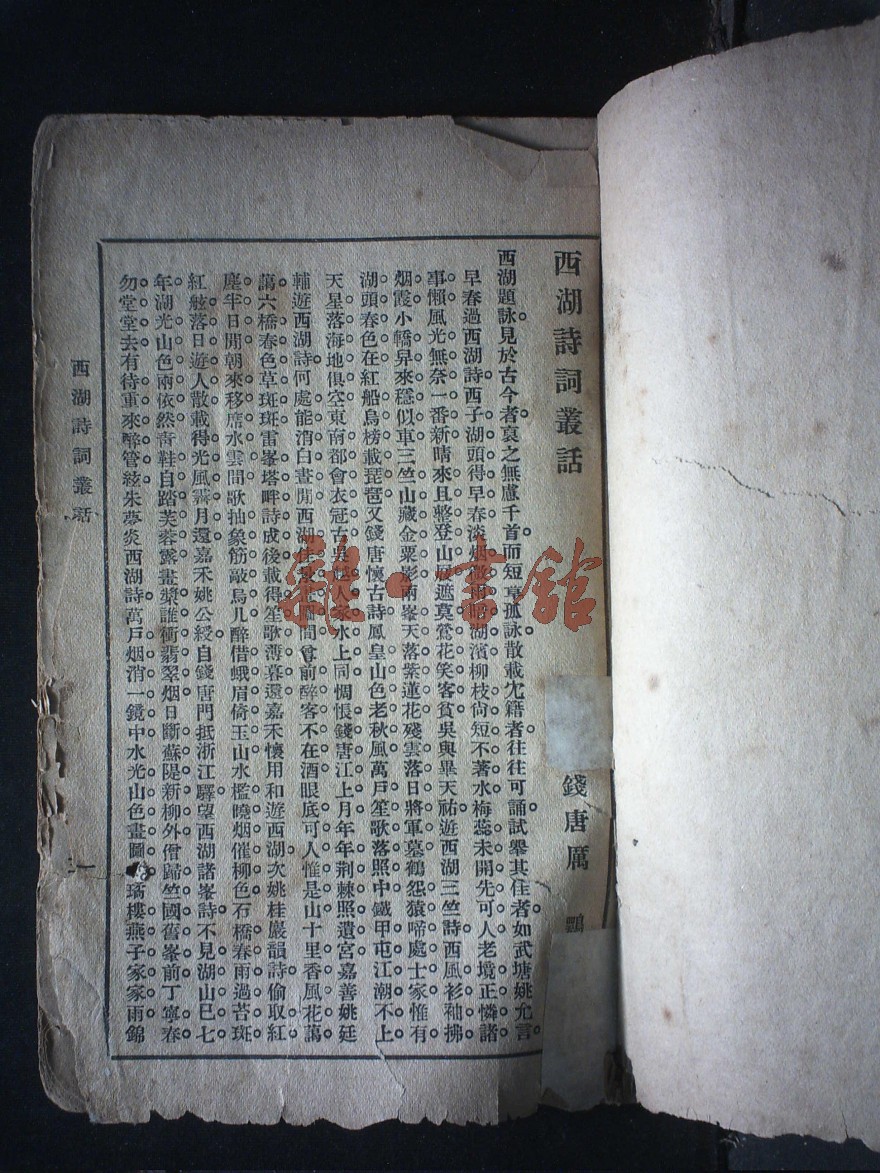 西湖詩詞叢話
錢唐厲鶚
西湖題詠見於古今者裒之無慮千首而短章孤詠散載尤籍者往往可誦試舉其佳者如武塘姚允言
早春過西湖詩西子湖頭得早春淡烟微雨暗湖濱柳枝尙短不著水梅蕊未開先可人老境正憐諸
事懶風光無奈一番新晴來且整登山屐遮莫鶯花笑客貧吳興畢天祐遊西湖三竺詩西風衫袖拂
烟霞小轎舁來穩似車三竺山藏金粟影兩峯天落紫蓮花殘雲落日將軍墓鶴怨猿啼處士家惟有
湖頭春色在紅船烏榜載琵琶又錢唐懷古詩鳳皇山色老秋風萬戶笙歌落照中鐵甲屯江潮不上
天星落海地俱空東南都會衣冠古吳越人家水上同惆悵錢唐江上月年年荆棘照遺宮嘉善姚廷
輔遊西湖詩何處能消白晝閒西湖佳 間尊前醉客不在酒眼底可人惟是山十里香風花藹
藹六橋春色草斑斑雷峯塔畔詩成後載得笙歌薄暮還嘉禾懷用和遊西湖次姚桂巖韻詩偷取紅
塵半日閒朝來移席水雲間歌抽象筋敲烏几醉借蛾眉倚玉山水檻曉烟催柳色石橋春雨過苔斑
紅舷落日遊人散載得光風霽月還嘉禾姚公綬自錢唐門抵浙江驛望西湖諸峯詩不見湖山已七
年湖光山色兩依然靑鞋自踏芙蓉露畫槳誰衝翡翠烟日斷蘇隄新柳外僧歸竺國舊峯前丁寧春
勿堂堂去有待重來醉管絃朱夢炎西湖詩萬戶烟消一鏡中水光山色畫圖 瑤樓燕子家家雨錦
西湖詩詞叢話
一
雜·書館